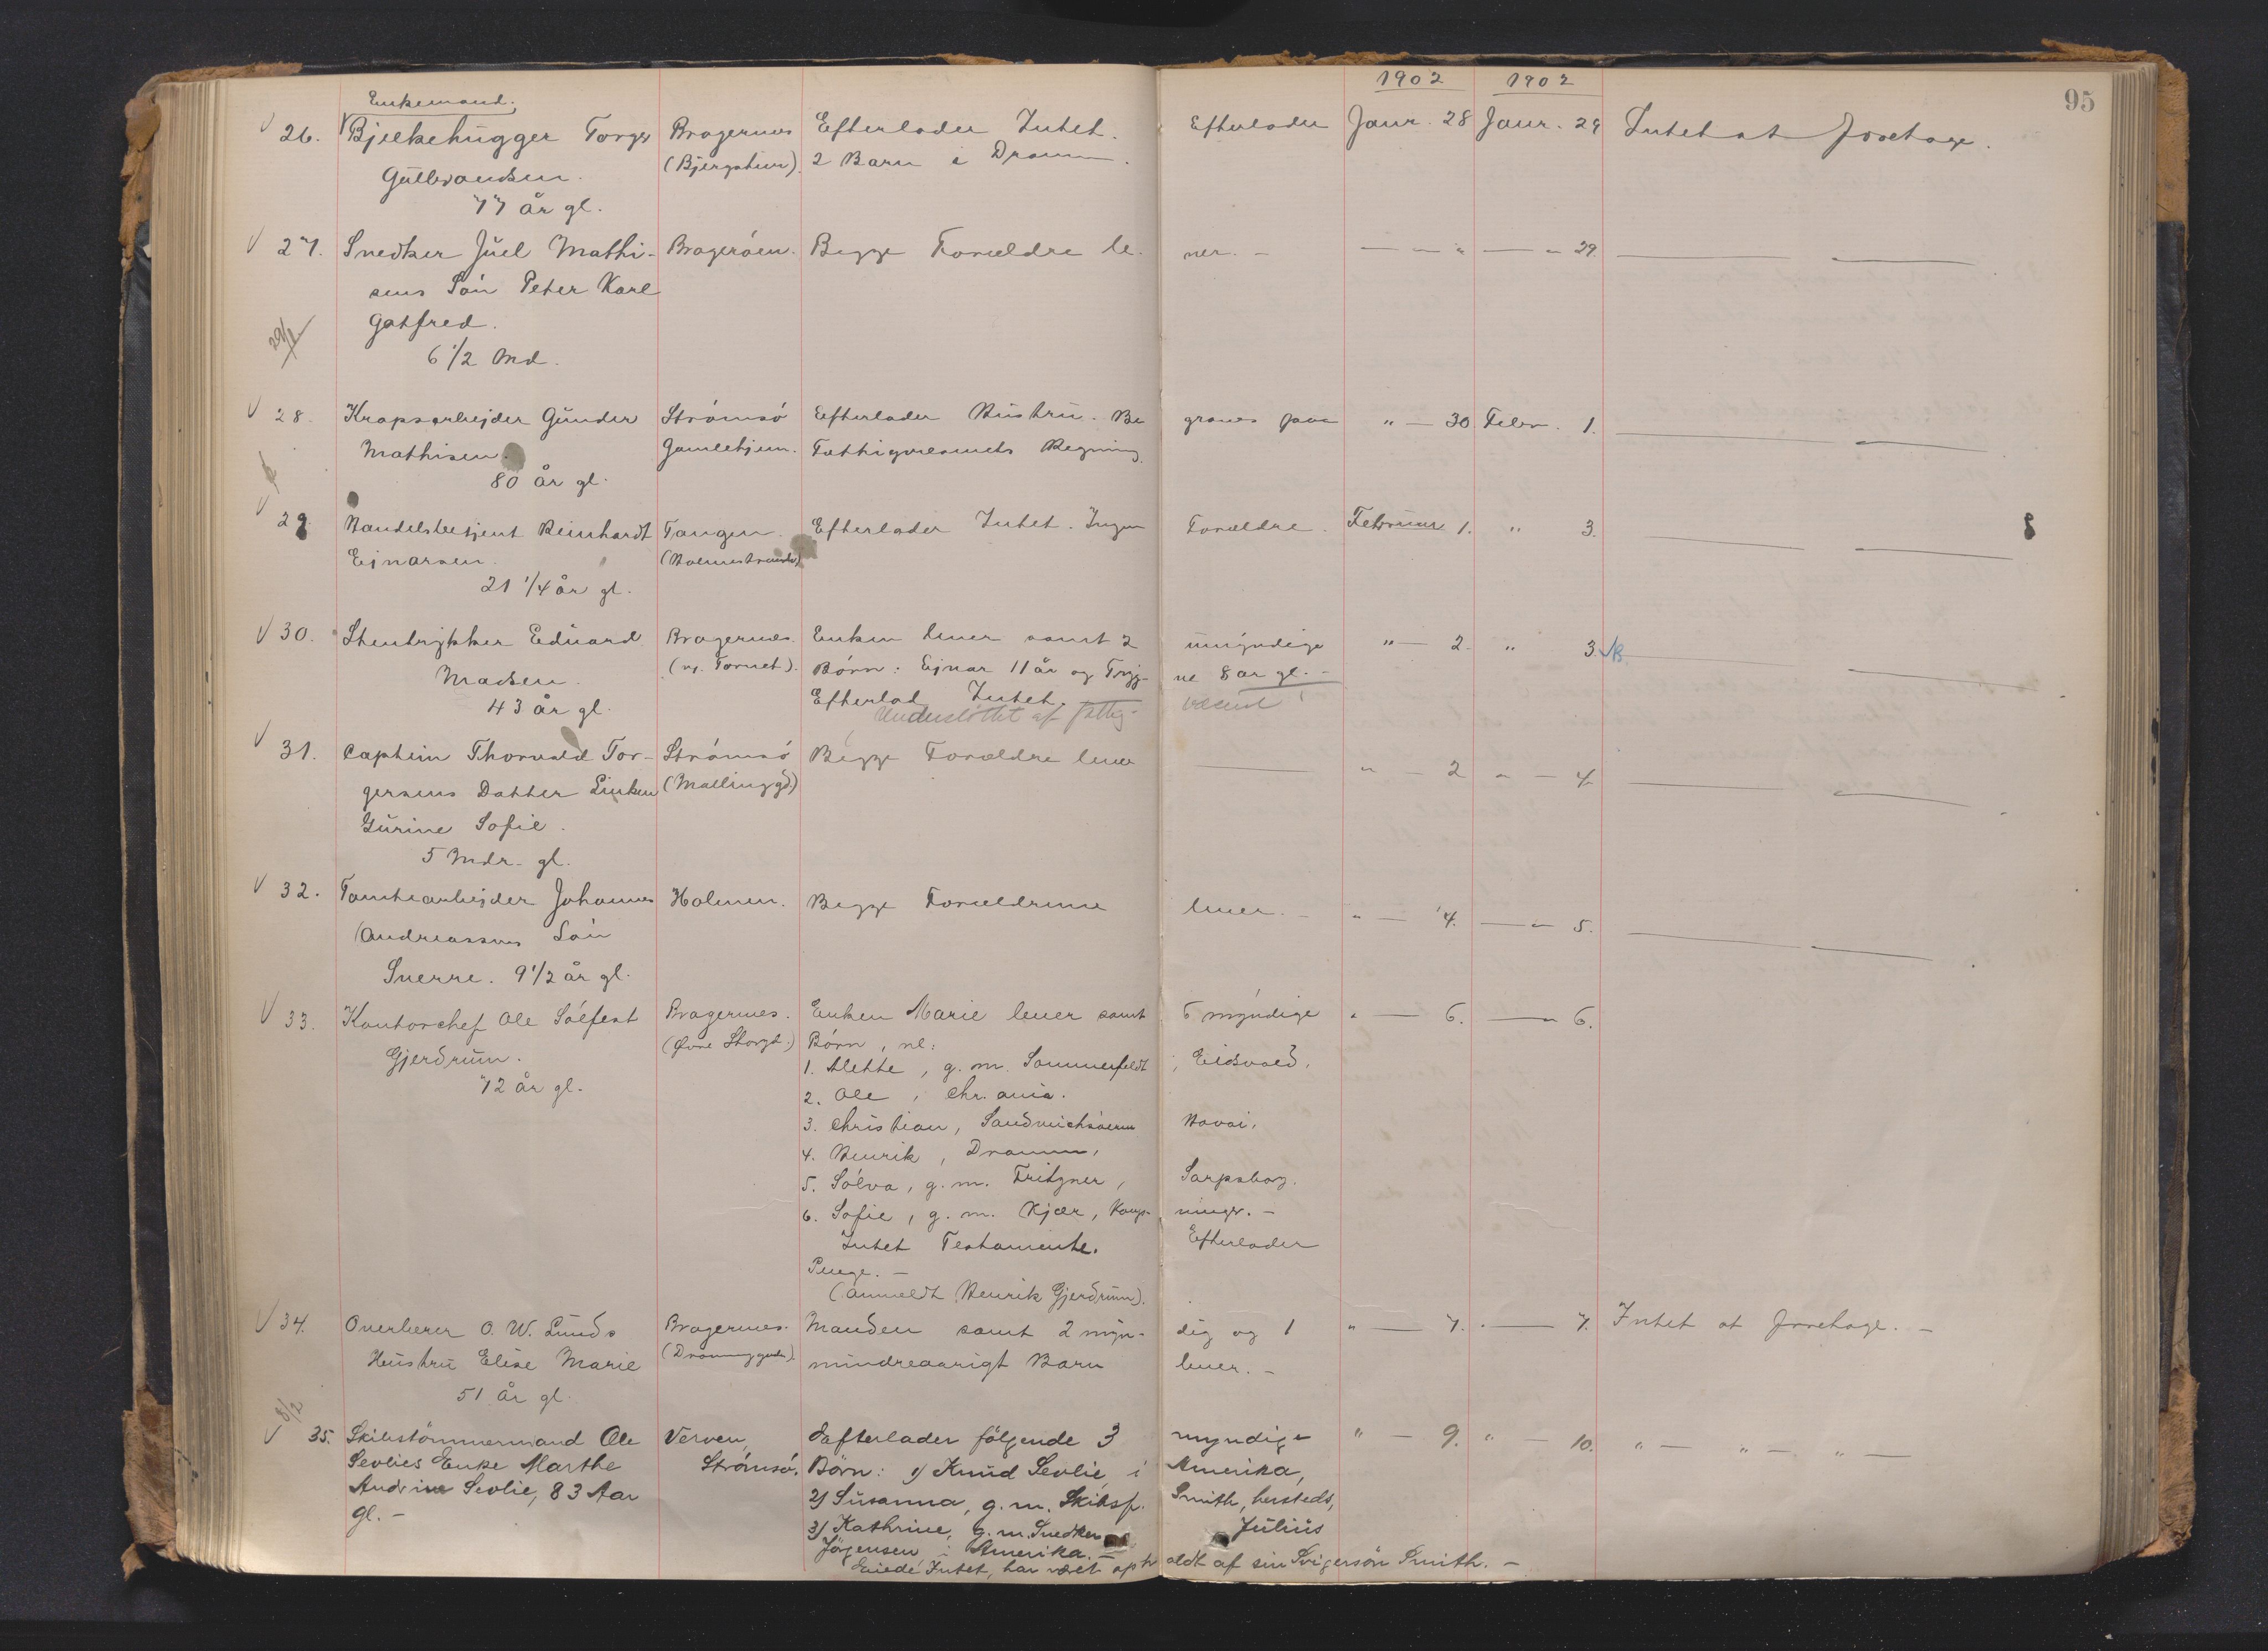 95
1902 1902
Enkemand.
26. Bjelkehugger Torger Bragernes Efterlader Intet. Efterlader Janr. 28 Janr. 29 Intet at foretage.
Gulbrandsen. (Bjergstien). 2 Barn i Dramm.
77 år gl.
27. Snedker Juel Mathi- Bragerøen. Begge Forældre le- ver. - — " — " 29.
sens Søn Peter Karl
Gotfred.
6 1/2 Md.
28. Kropsarbejder Gunder Strømsø Efterlader Hustru. Be graves paa " — 30. Febr. 1.
Mathisen. Gamlehjem. Fattigvæsenets Regning.
80 år gl.
29. Handelsbetjent Reinhardt Tangen. Efterlader Intet. Ingen Forældre. Februar 1. " 3.
Ejnarsen. (Holmestrand)
21 1/4 år gl.
30. Stentrykker Eduard Bragernes. Enken lever samt 2 umyndige " — 2. " 3.
Madsen. (v. Tornet). Børn: Ejnar 11 år og Tryg- ve 8 år gl. -
43 år gl. Efterlod Intet.
Understøttet af fattig- væsenet
31. Captein Thorvald Tor- Strømsø Begge Forældre lever " — 2 " — 4
gersens Datter Linken (Mallinggd)
Gurine Sofie.
5 Mdr. gl.
32. Tomtearbejder Johannes Holmen. Begge Forældrene lever. - " — 4. — " 5.
Andreassens Søn
Sverre. 9 1/2 år gl.
33. Kontorchef Ole Sølfest Bragernes. Enken Marie lever samt 6 myndige " — 6. — " 6.
Gjerdrum. (Øvre Storgt.) Børn, nl:
72 år gl. 1. Alette, g. m. Sommerfeldt, Eidsvold.
2. Ole, Chr.ania.
3. Christian, Sandwichsøerne Havai.
4. Henrik, Dramm,
5. Sølva, g. m. Fritzner, Sarpsborg.
6. Sofie, g. m. Kjær, Kongs- vinger. -
Intet Testamente. Efterlader
Penge. -
(Anmeldt Henrik Gjerdrum).
34. Overlærer O. W. Lunds Bragernes. Manden samt 2 myn- dig og 1 " — 7. " — 7. Intet at foretage. -
Hustru Elise Marie mindreaarigt Barn lever. -
51 år gl.
8/2
35. Skibstømmermand Ole Verven, Eefterlader følgende 3 myndige " — 9. " — 10. " — " — " —
Sevlies Enke Marthe Strømsø. Børn: 1) Knud Sevlie i Amerika,
Andrine Sevlie, 83 Aar 2) Susanna, g. m. Skibsf. Smith, hersteds,
gl. - 3) Kathrine, g. m. Snedker Julius
Jørgensen i Amerika. -
Eiede Intet, har været opholdt af sin Svigersøn Smith. -